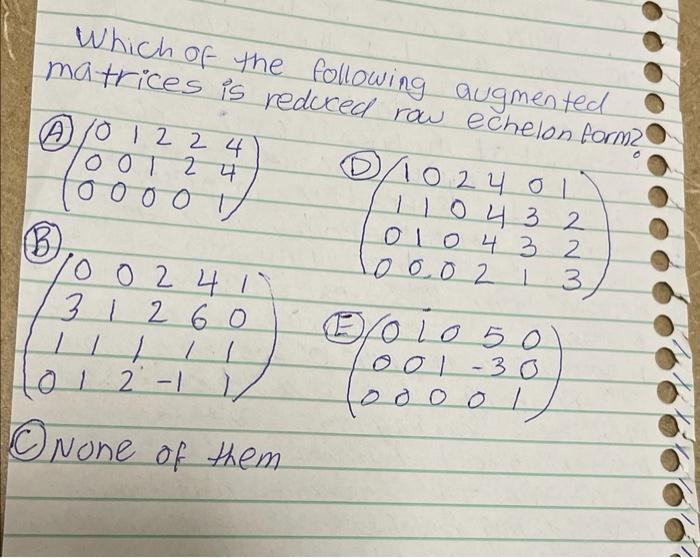 Which of the following augmented
matrices is reduced row echelon form?
(A) 0 1 2 2 4
0 0 1 2 4
0 0 0 0 1
(B)
0 0 2 4 1
3 1 2 6 0
1 1 1 1 1
0 1 2 -1 1
(C) None of them
(D) 1 0 2 4 0 1
1 1 0 4 3 2
0 1 0 4 3 2
0 0 0 2 1 3
(E) 0 1 0 5 0
0 0 1 -3 0
0 0 0 0 1